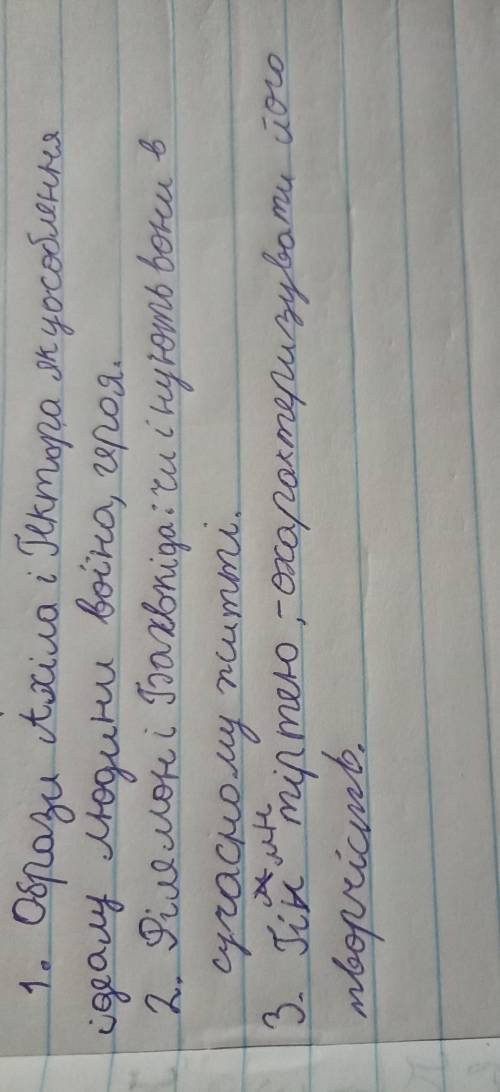 1. Образи Ахіла і Гектора як уособлення
ідеалу людини воїна, героя.
2. Філемон і Бавкіда: чи існують вони в
сучасному житті.
3. Гімн тіртею, - охарактеризувати його
творчість.